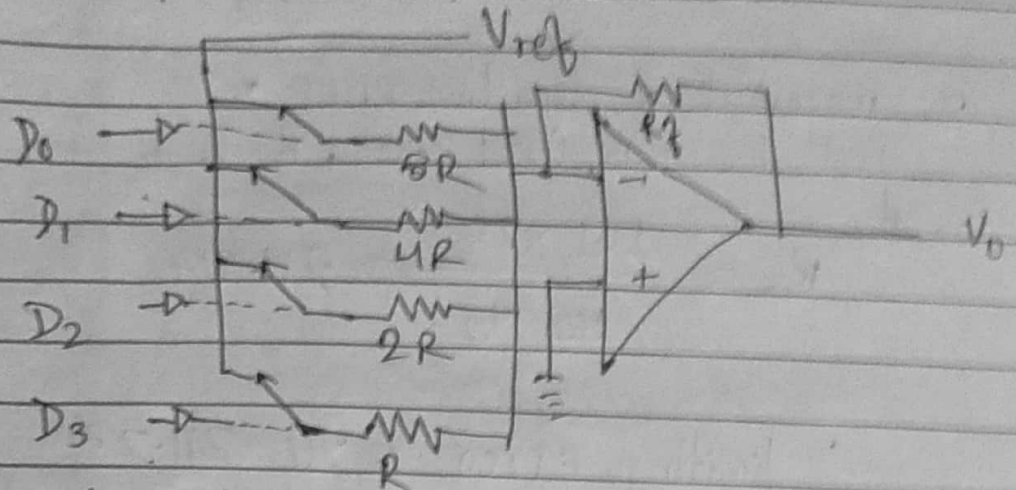 Vref
Rf
D0
8R
−
D1
4R
V0
+
D2
2R
D3
R